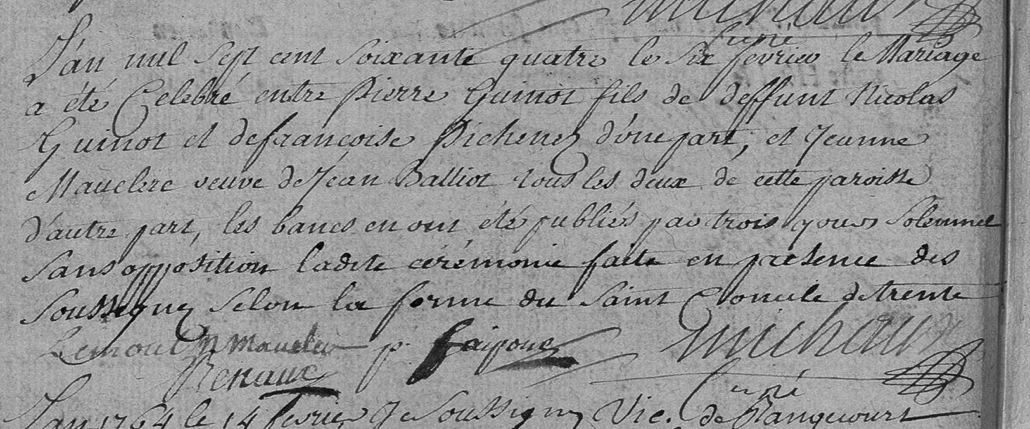 Michaux
Curé
L'an mil sept cent soixante quatre le six fevrier le Mariage
a été Celebré entre Pierre Guinot fils de deffunt Nicolas
Guinot et defrançoise Pichenez d'une part, et Jeanne
Mauclere veuve de Jean Balliot tous les deux de cette paroisse
d'autre part, les bancs en ont été publiés par trois jours Solemnel
Sans opposition ladite cérémonie faite en présence des
Soussignez selon la forme du Saint Concile de trente
N Mauclere p.
Renaux
Michaux
Curé
L'an 1764 le 14 fevrier Je Soussigné Vic. de Rangecourt